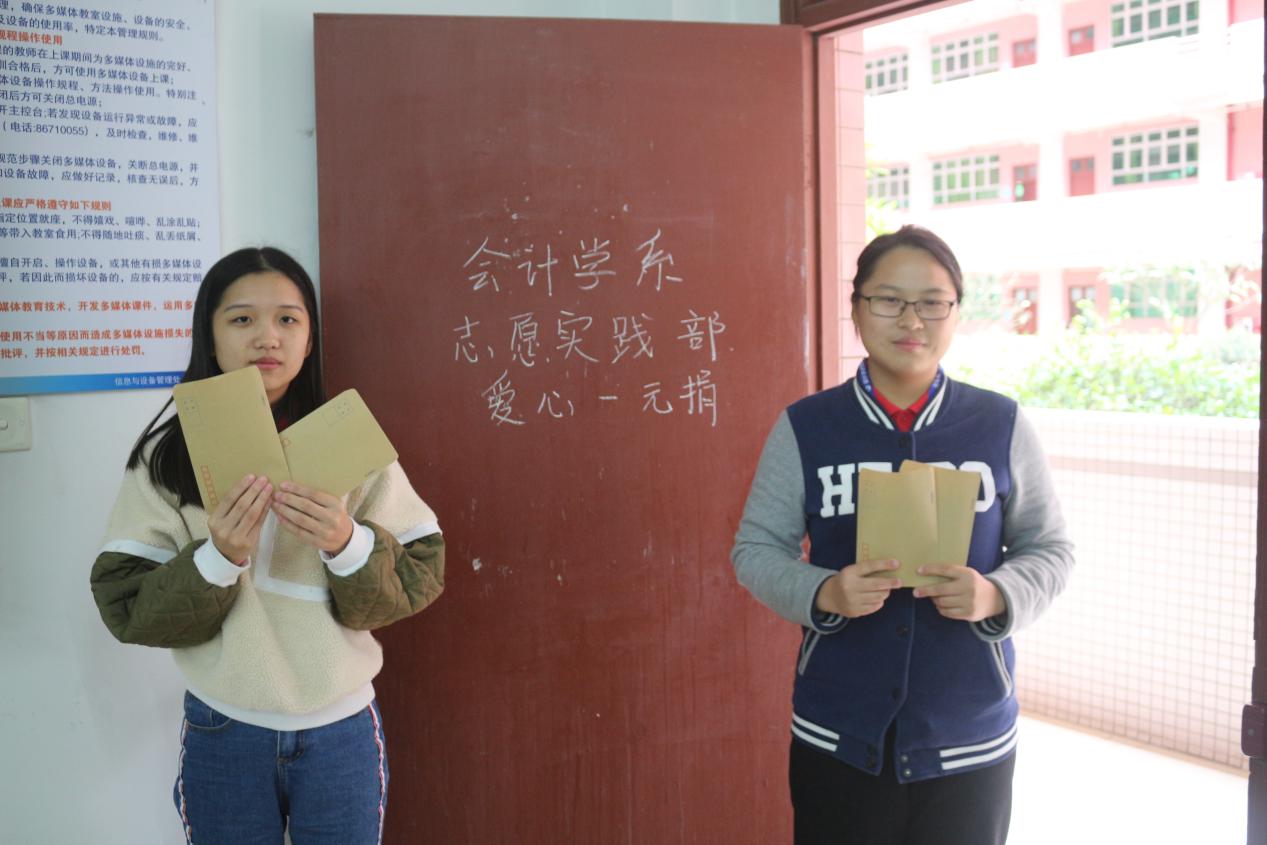 理，确保多媒体教室设施、设备的安全、
及设备的使用率，特定本管理规则。
规程操作使用
的教师在上课期间为多媒体设施的完好、
训合格后，方可使用多媒体设备上课；
体设备操作规程、方法操作使用。特别注
闭后方可关闭总电源；
开主控台;若发现设备运行异常或故障，应
（电话:86710055），及时检查，维修、维
规范步骤关闭多媒体设备，关断总电源，并
如设备故障，应做好记录，核查无误后，方
课应严格遵守如下规则
指定位置就座，不得嬉戏、喧哗、乱涂乱贴；
等带入教室食用;不得随地吐痰、乱丢纸屑、
擅自开启、操作设备，或其他有损多媒体设
评，若因此而损坏设备的，应按有关规定赔
媒体教育技术，开发多媒体课件，运用多
使用不当等原因而造成多媒体设施损失的
批评，并按相关规定进行处罚。
信息与设备管理处
会计学系
志愿实践部
爱心一元捐